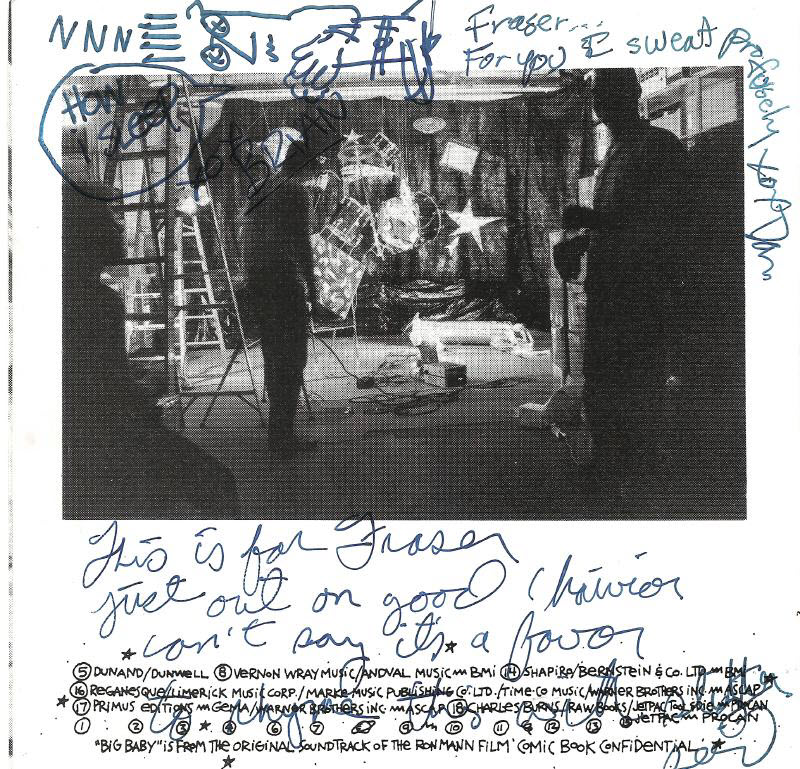 NNN
Fraser...
For you I sweat profusely
HOW
I SLEEP
BRIAN
This is for Fraser
just out on good
can't say it's a favor
to
⑤ DUNAND/DUNWELL ⑧ VERNON WRAY MUSIC/ANDVAL MUSIC BMI ⑭ SHAPIRO/BERNSTEIN & CO. LTD. BMI
⑯ REGANESQUE/LIMERICK MUSIC CORP./MARKE MUSIC PUBLISHING CO. LTD./TIME-CO MUSIC/WARNER BROTHERS INC. ASCAP
⑰ PRIMUS EDITIONS GEMA/WARNER BROTHERS INC. ASCAP ⑱ CHARLES BURNS/RAW BOOKS/JETPAC PROCAN
① ② ③ ④ ⑥ ⑦ ⑨ ⑩ ⑪ ⑫ ⑬ JETPAC PROCAN
"BIG BABY" IS FROM THE ORIGINAL SOUNDTRACK OF THE RON MANN FILM 'COMIC BOOK CONFIDENTIAL'